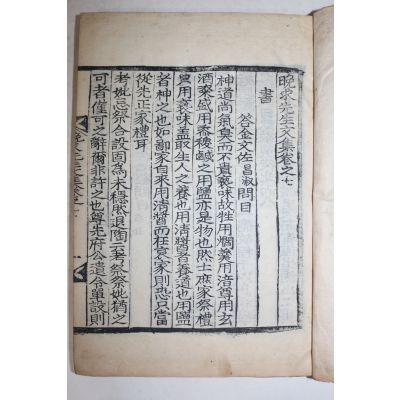 晩求先生文集卷之七
書
答金文佐昌淑問目
神道尚氣臭而不貴褻味故牲用爓羹用涪尊用玄
酒粢盛用黍稷醎之用鹽亦是物也然士庶家祭禮
男用褻味盖取生人之養也用淸醬者養道也用鹽
者神之也如鄙家自來用淸醬而在哀家則恐只當
從先正家禮耳
考妣忌祭合設固爲未穩然退陶云若祭祭妣猶之
可者僅可之辭爾非許之也尊先府公遺令單設則